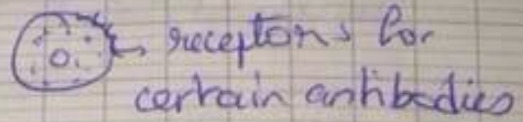 receptors for
certain antibodies